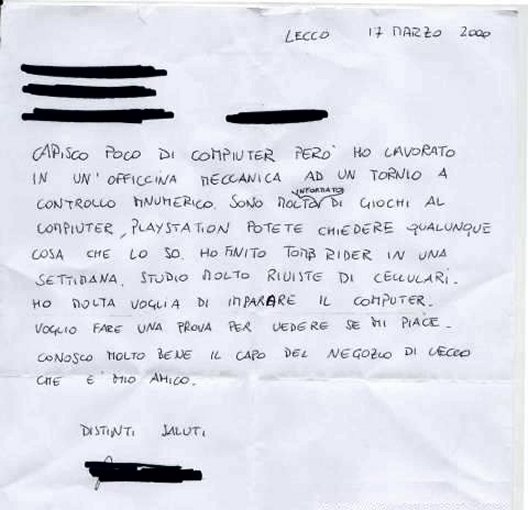 LECCO 17 MARZO 2000
CAPISCO POCO DI COMPIUTER PERO' HO LAVORATO
IN UN' OFFICCINA MECCANICA AD UN TORNIO A
CONTROLLO MNUMERICO. SONO MOLTO INFORMATO DI GIOCHI AL
COMPIUTER, PLAYSTATION POTETE CHIEDERE QUALUNQUE
COSA CHE LO SO. HO FINITO TOMB RIDER IN UNA
SETTIMANA. STUDIO MOLTO RIVISTE DI CELLULARI.
HO MOLTA VOGLIA DI IMPARARE IL COMPUTER.
VOGLIO FARE UNA PROVA PER VEDERE SE MI PIACE.
CONOSCO MOLTO BENE IL CAPO DEL NEGOZIO DI LECCO
CHE E' MIO AMICO.
DISTINTI SALUTI